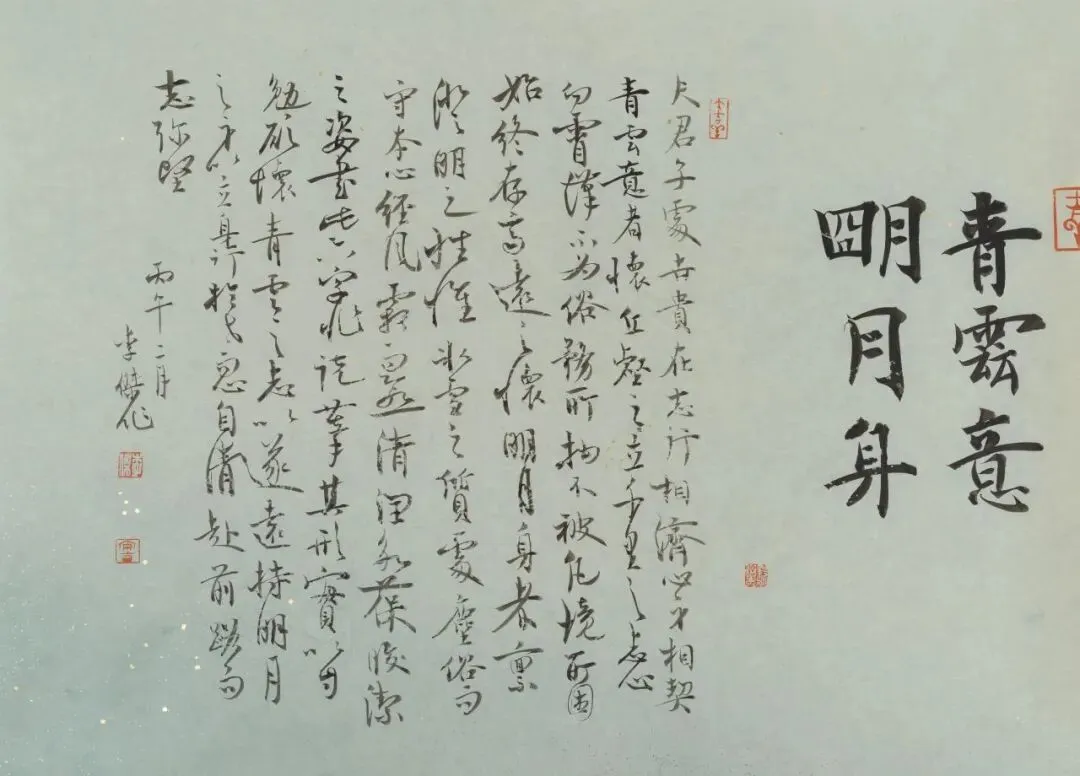 青雲意
朙月身
夫君子處世貴在志行相濟心身相契
青雲意者懷丘壑之立千里之志心
向霄漢不為俗務所拘不被凡境所困
始終存高遠之懷明月身者稟
澄明之性惟冰雪之質處塵俗而
守本心經風霜而愈清永葆皎潔
之姿書此六字非託筆其形實以自
勉願懷青雲之志以遂遠持明月
之身以立身行自清赴前路而
志弥堅
丙午二月
李傑作